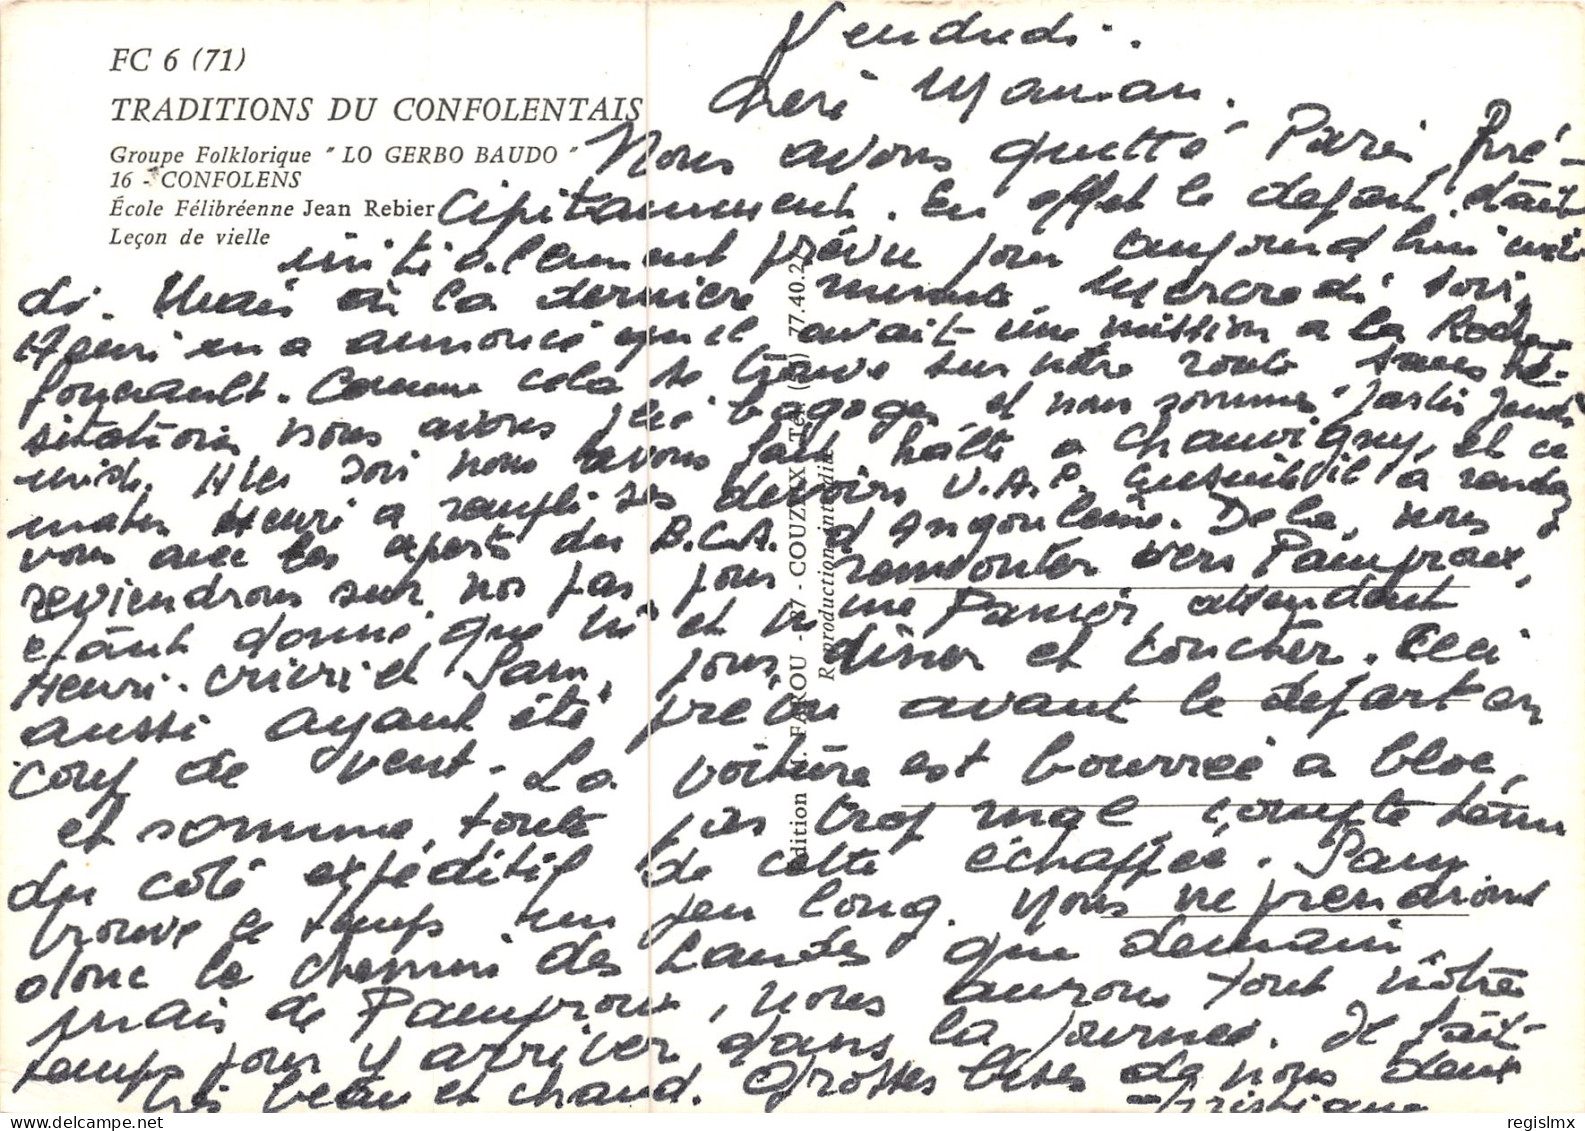 FC 6 (71)
TRADITIONS DU CONFOLENTAIS
Groupe Folklorique " LO GERBO BAUDO "
16 - CONFOLENS
École Félibréenne Jean Rebier
Leçon de vielle
Édition M. FAROU - 87 - COUZEIX - Tél. 77.40.27
Reproduction interdite
Vendredi.
Cheri Maman.
Nous avons quitté Paris pré-
cipitamment. En effet le depart était
initialement prévu pour aujourd'hui midi
di. Mais à la derniere minute, Mercredi soir,
Henri m'a annoncé qu'il avait une mission a la Roche
foucault. Comme cela se trouve sur notre route sans hé-
sitation nous avons plié bagages et nous sommes partis Jeudi
midi. Hier soir nous avons fait halte a Chauvigny, et ce
matin Henri a rempli ses devoirs U.A.P. a rendez
vous avec les du B.C.A. d'Angoulème. De la, nous
reviendrons sur nos pas pour remonter vers Pamproux,
étant donné que et me Pamoi attendent
Henri. cricri et Pam, pour diner et coucher. Ceci
aussi ayant été prévu avant le depart en
coup de vent. La voiture est bourrée a bloc,
et somme, toute pas trop mal, compte tenu
du coté expéditif de cette échappée. Pam
trouve le temps un peu long. Nous ne prendrons
donc le chemin des Landes que demain,
mais de Pamproux, nous aurons tout nôtre
temps pour y arriver dans la journée. Il fait
très beau et chaud. Grosses bises de nous deux
Christiane
regislmx
delcampe.net